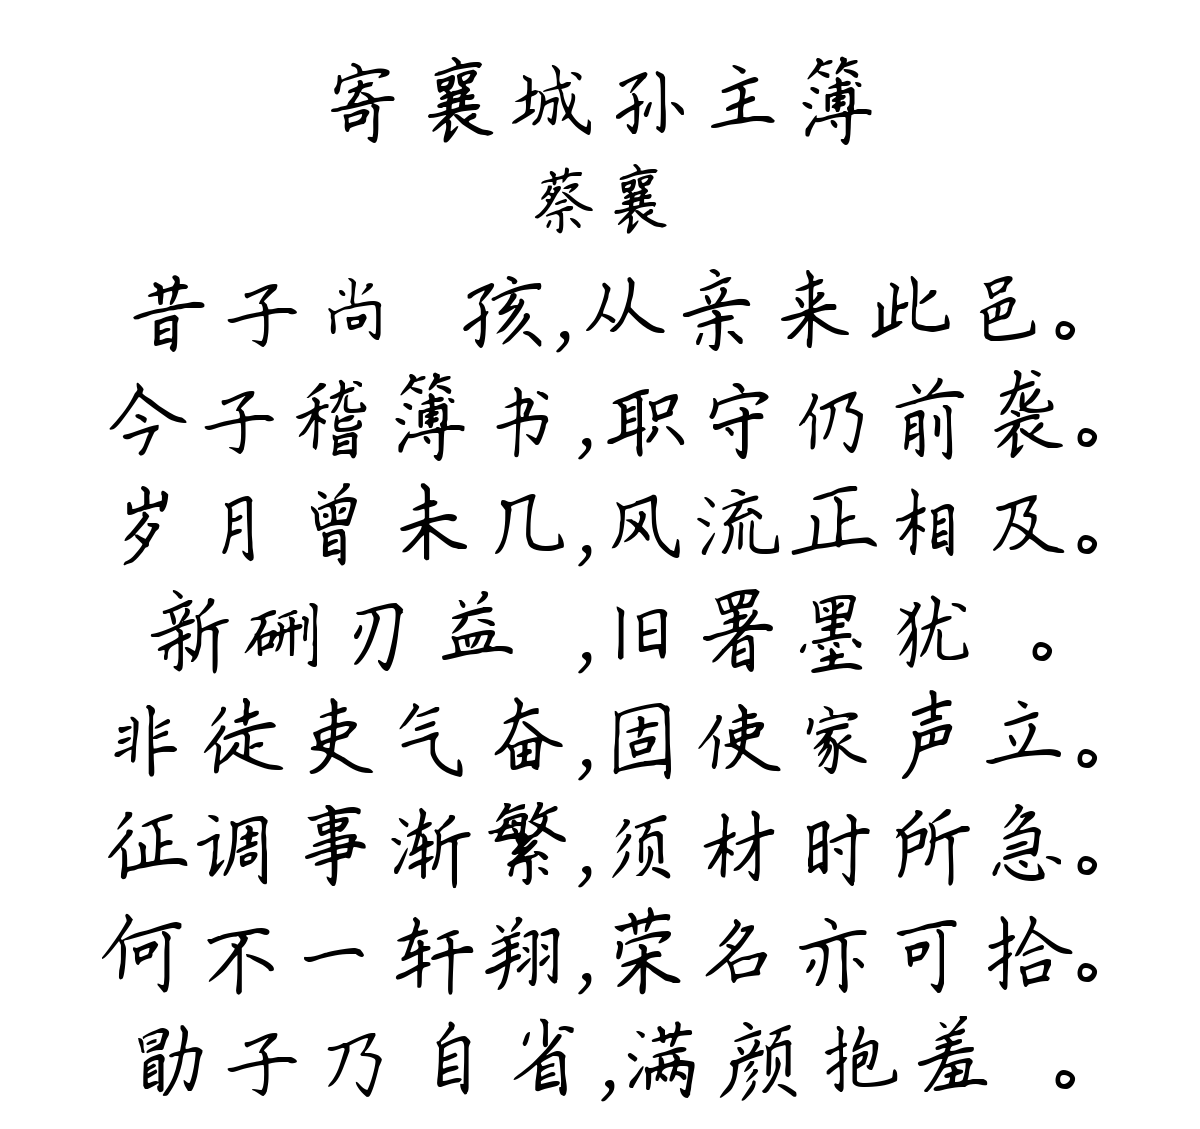 寄襄城孙主簿
蔡襄
昔子尚 孩,从亲来此邑。
今子稽簿书,职守仍前袭。
岁月曾未几,风流正相及。
新硎刃益 ,旧署墨犹 。
非徒吏气奋,固使家声立。
征调事渐繁,须材时所急。
何不一轩翔,荣名亦可拾。
勖子乃自省,满颜抱羞 。